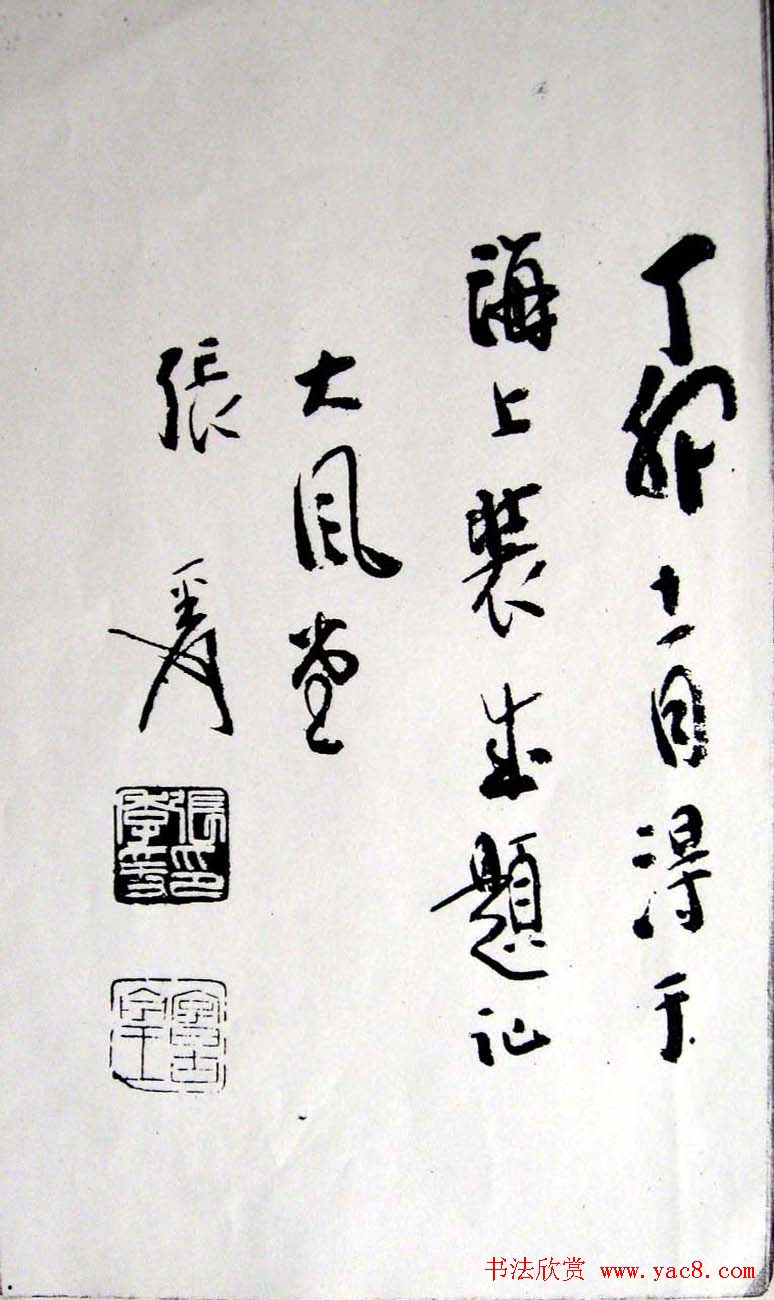 丁卯十一月得于
海上裝成題記
大風堂
張爰
张季爰印
书法欣赏 www.yac8.com